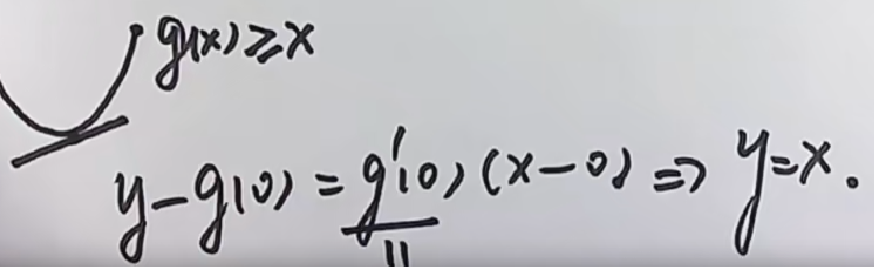 g(x)≥x
y-g(0)=g'(0)(x-0)⇒y=x.